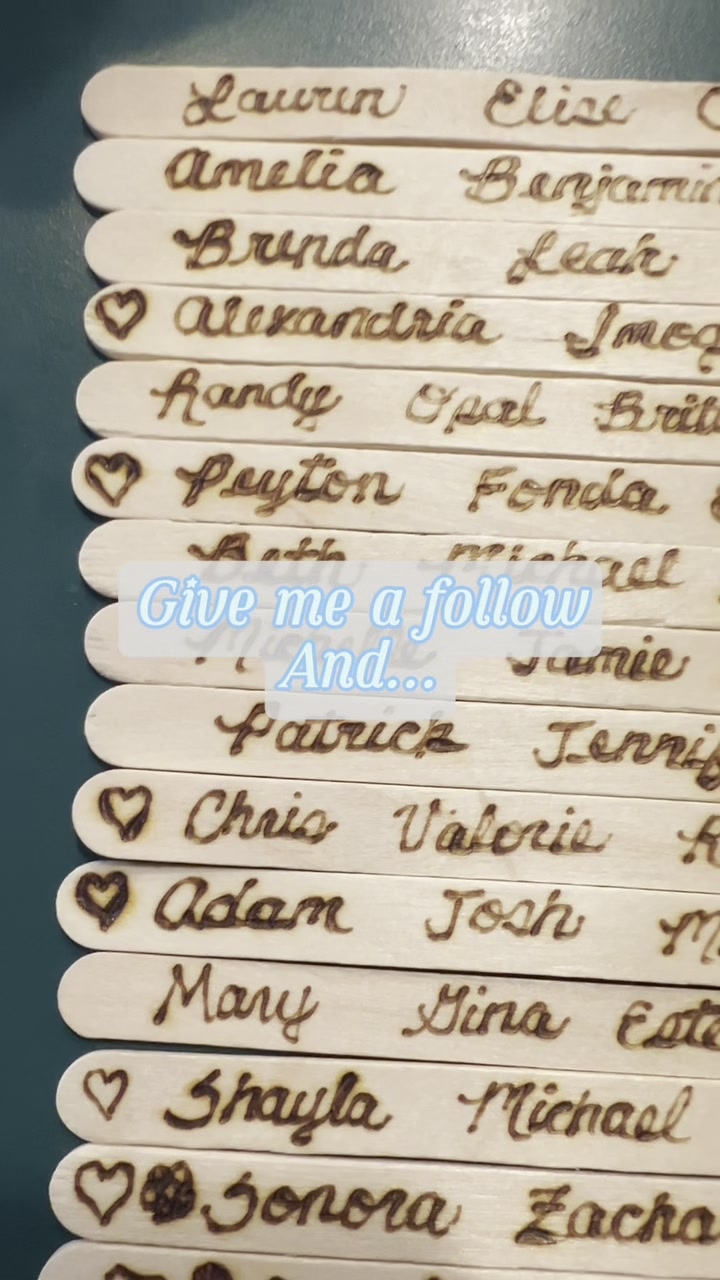 Lauren Elise
Amelia Benjamin
Brenda Leah
Alexandria Imog
Randy Opal Brit
Peyton Fonda
Beth Michael
Give me a follow
Michelle Jamie
And...
Patrick Jennif
Chris Valorie R
Adam Josh M
Mary Gina Este
Shayla Michael
Sonora Zacha